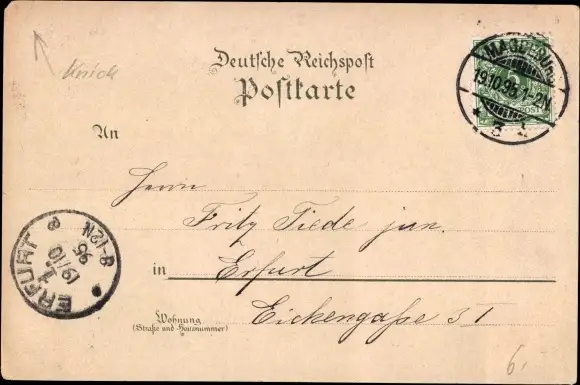 Knick
Deutsche Reichspost
Postkarte
MAGDEBURG
19.10.95.1-2N
* 3 *
5
POST
An
Herrn
Fritz Tiede jun.
in Erfurt
Wohnung
(Straße und Hausnummer)
Eichengaße 3 I
ERFURT
1
19/10
95
8-12N
6.